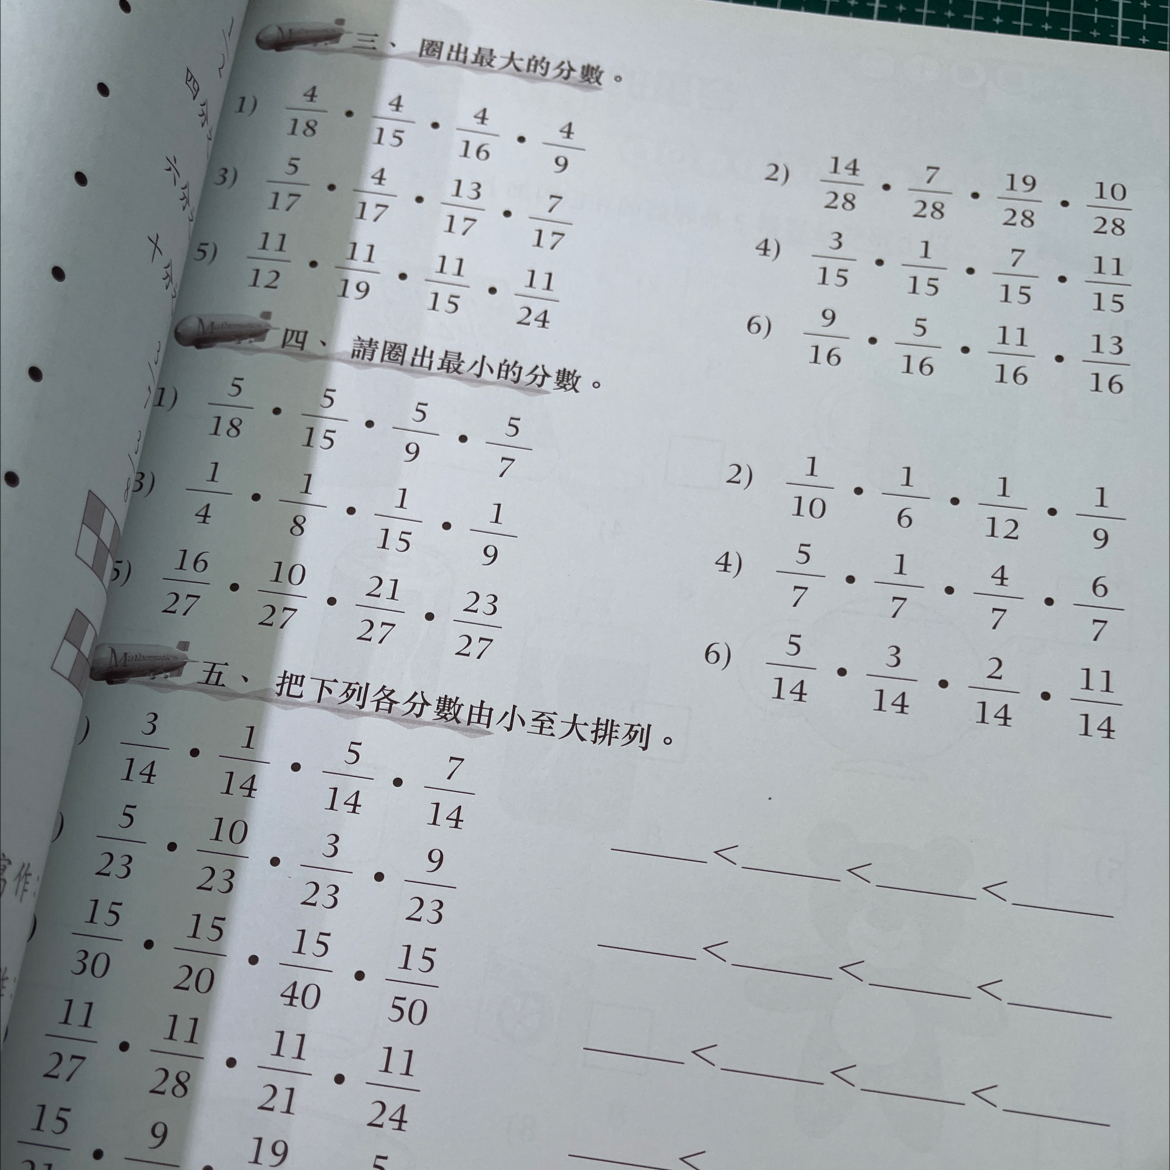 三、圈出最大的分數。
1) 4/18 • 4/15 • 4/16 • 4/9
2) 14/28 • 7/28 • 19/28 • 10/28
3) 5/17 • 4/17 • 13/17 • 7/17
4) 3/15 • 1/15 • 7/15 • 11/15
5) 11/12 • 11/19 • 11/15 • 11/24
6) 9/16 • 5/16 • 11/16 • 13/16
四、請圈出最小的分數。
1) 5/18 • 5/15 • 5/9 • 5/7
2) 1/10 • 1/6 • 1/12 • 1/9
3) 1/4 • 1/8 • 1/15 • 1/9
4) 5/7 • 1/7 • 4/7 • 6/7
5) 16/27 • 10/27 • 21/27 • 23/27
6) 5/14 • 3/14 • 2/14 • 11/14
五、把下列各分數由小至大排列。
) 3/14 • 1/14 • 5/14 • 7/14
____<____<____<____
) 5/23 • 10/23 • 3/23 • 9/23
____<____<____<____
) 15/30 • 15/20 • 15/40 • 15/50
____<____<____<____
11/27 • 11/28 • 11/21 • 11/24
____<
15 • 9 • 19 5